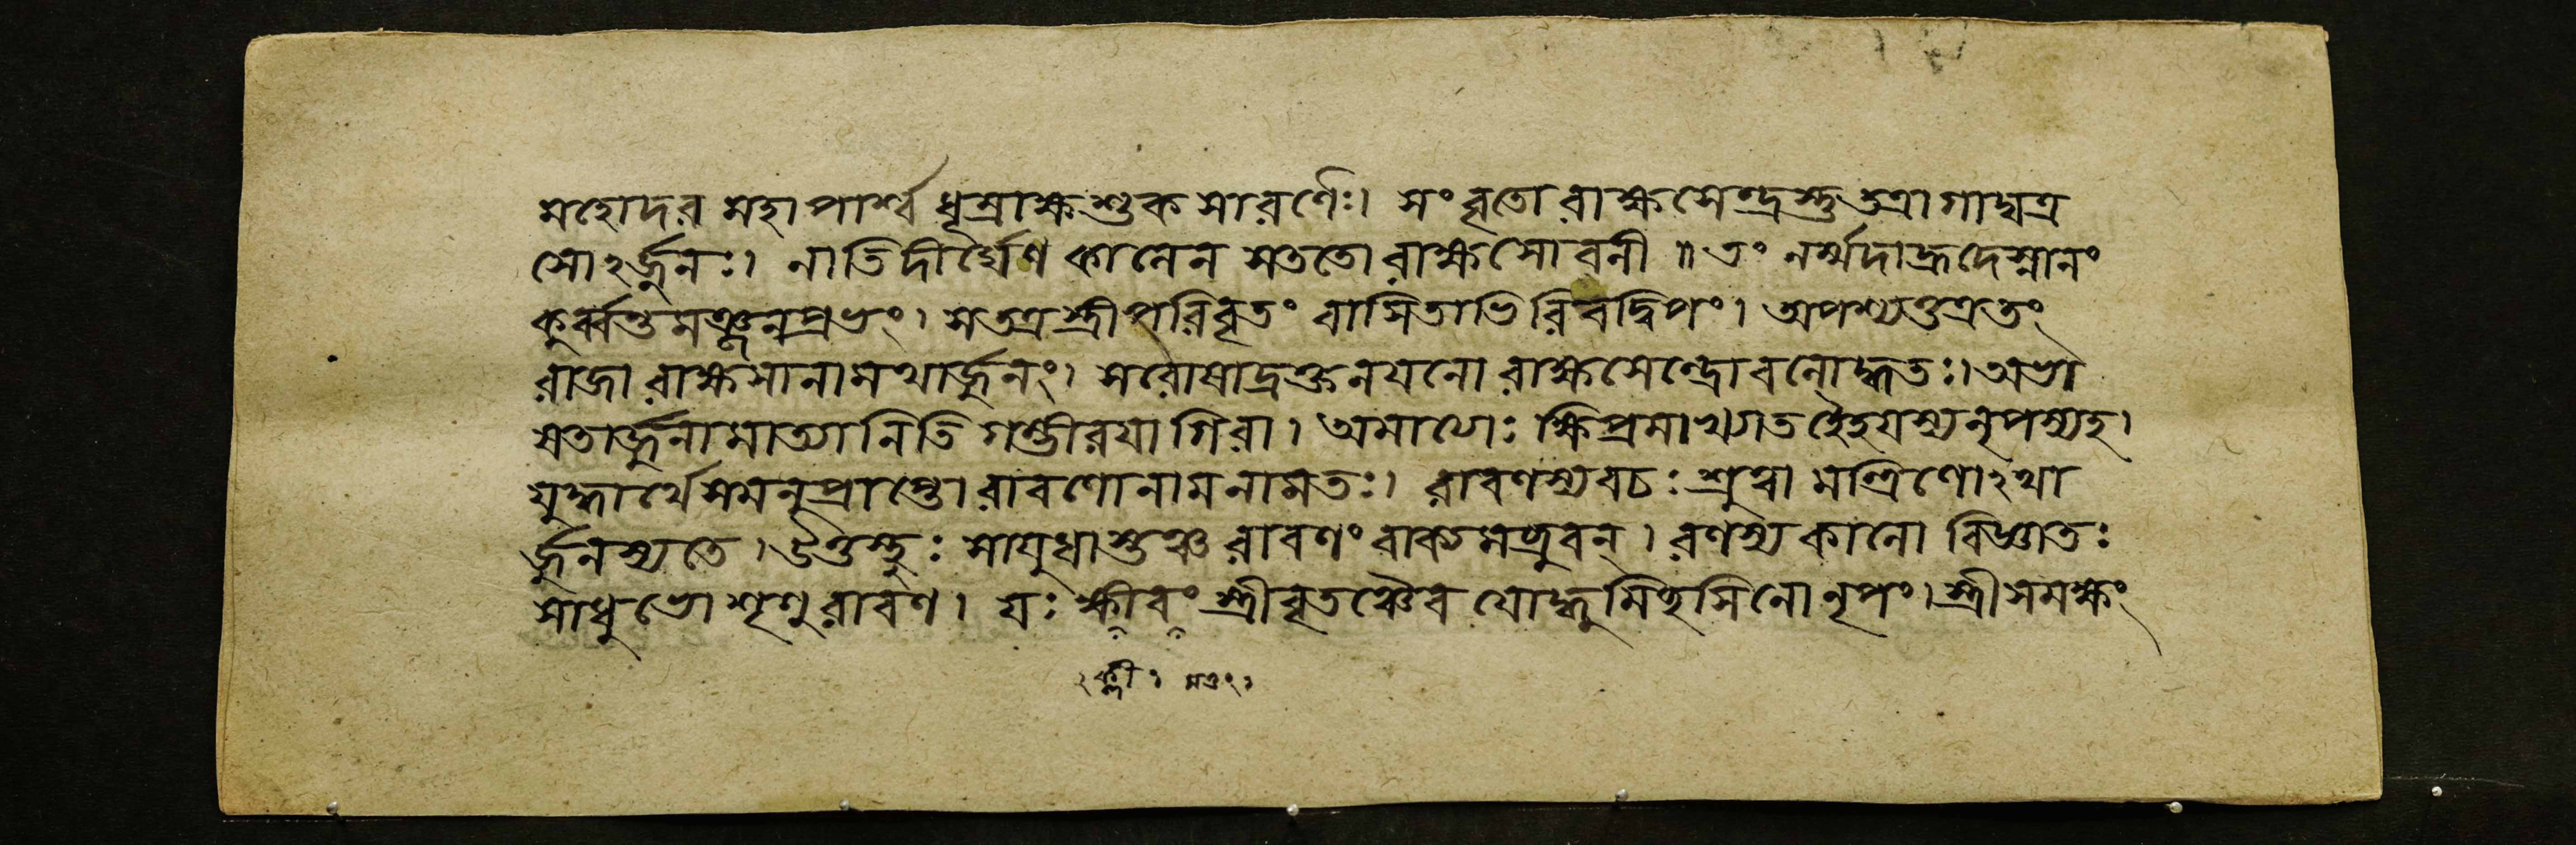 মহোদর মহাপার্শ্ব ধূম্রাক্ষশুক সারণৈঃ। সংবৃতো রাক্ষসেন্দ্রস্তু তত্রাগাদ্যত্র
সোঽর্জুনঃ। নাতিদীর্ঘেণ কালেন সততো রাক্ষসোবলী॥ তং নর্ম্মদাহ্রদেস্নানং
কুর্ব্বন্তমঞ্জনপ্রভং। সতত্রস্ত্রীপরিবৃতং বাসিতাভিরিবদ্বিপং। অপশ্যত্তত্রতং
রাজা রাক্ষসানামথার্জুনং। সরোষাদ্রক্তনয়নো রাক্ষসেন্দ্রোবলোদ্ধতঃ। অভ্য
সেতার্জুনামাত্যানিতি গম্ভীরয়া গিরা। অমাত্যেঃ ক্ষিপ্রমাখ্যাত হৈহয়স্যনৃপস্যহ।
যুদ্ধার্থেসমনুপ্রাপ্তো রাবণোনামনামতঃ। রাবণস্যবচঃ শ্রুত্বা মন্ত্রিণোঽথা
র্জুনস্যতে। উত্তস্থুঃ সায়ুধাস্তঞ্চ রাবণং বাক্যমব্রুবন্। রণস্যকালো বিজ্ঞাতঃ
সাধুভো শৃণু রাবণ। যঃ ক্ষীবং স্ত্রীবৃতঞ্চৈব যোদ্ধুমিহসিনোনৃপং। স্ত্রীসমক্ষং